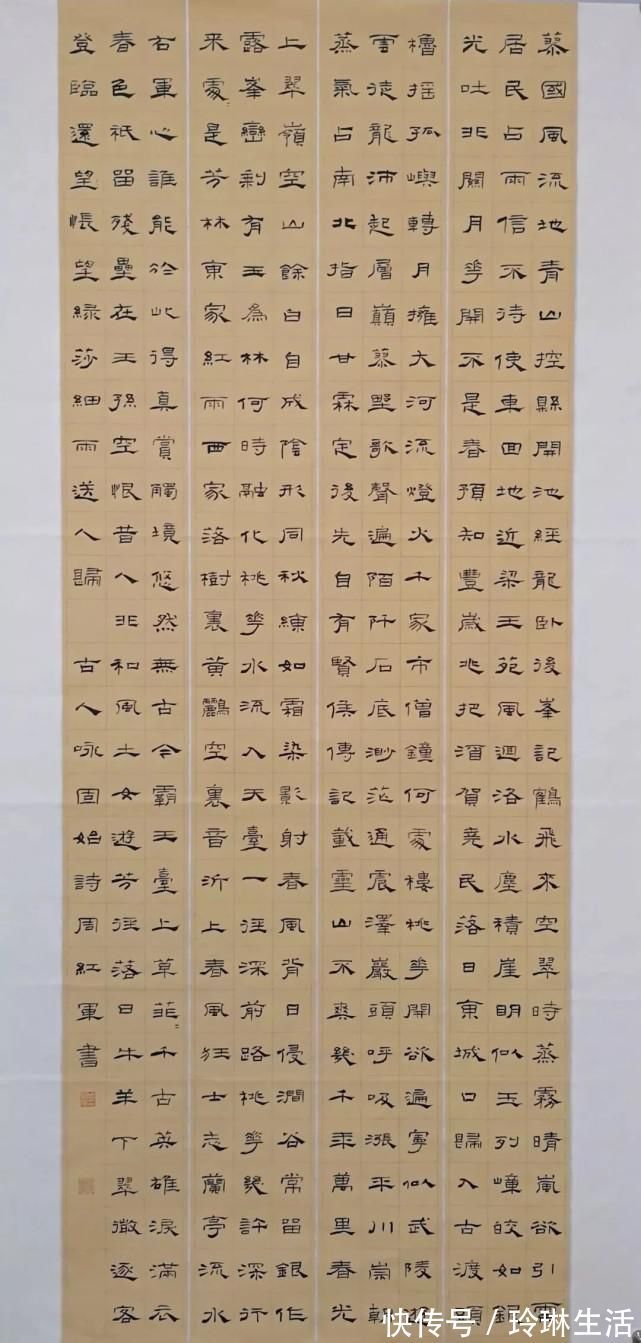 慕國風流地青山控縣開池經龍卧後峯記鶴飛來空翠時蒸霧晴嵐欲引雨
居民占雨信不待使車回地近梁王苑風迴洛水塵積崖明似玉列嶂皎如銀
光吐北關月華開不是春預知豐歲兆把酒賀堯民落日東城口歸人古渡頭
櫓摇孤嶼轉月擁大河流燈火千家市僧鐘何處樓桃華開欲遍寧似武陵
雲徒龍沛起層巔慕野歌聲遍陌阡石底渺茫通震澤巖頭呼吸漲平川崇朝
蒸氣占南北指日甘霖定後先自有賢侯傳記載靈山不爽幾千秉萬里春光
上翠嶺空山餘白自成陰形同秋練如霜染影射春風背日侵澗谷常留銀作
露峯巒剩有玉為林何時融化桃華水流入天臺一徑深前路桃華幾許深行
来處是芳林東家紅雨西家落樹裏黄鸝空裏音沂上春風狂士志蘭亭流水
右軍心誰能於此得真賞觸境悠然無古今霸王臺上草菲千古英雄淚滿衣
春色祇留殘壘在王孫空恨昔人非和風士女遊芳徑落日牛羊下翠微逐客
登臨還望悵望緑莎細雨送人歸 古人咏固始詩周紅軍書
快传号 / 玲琳生活